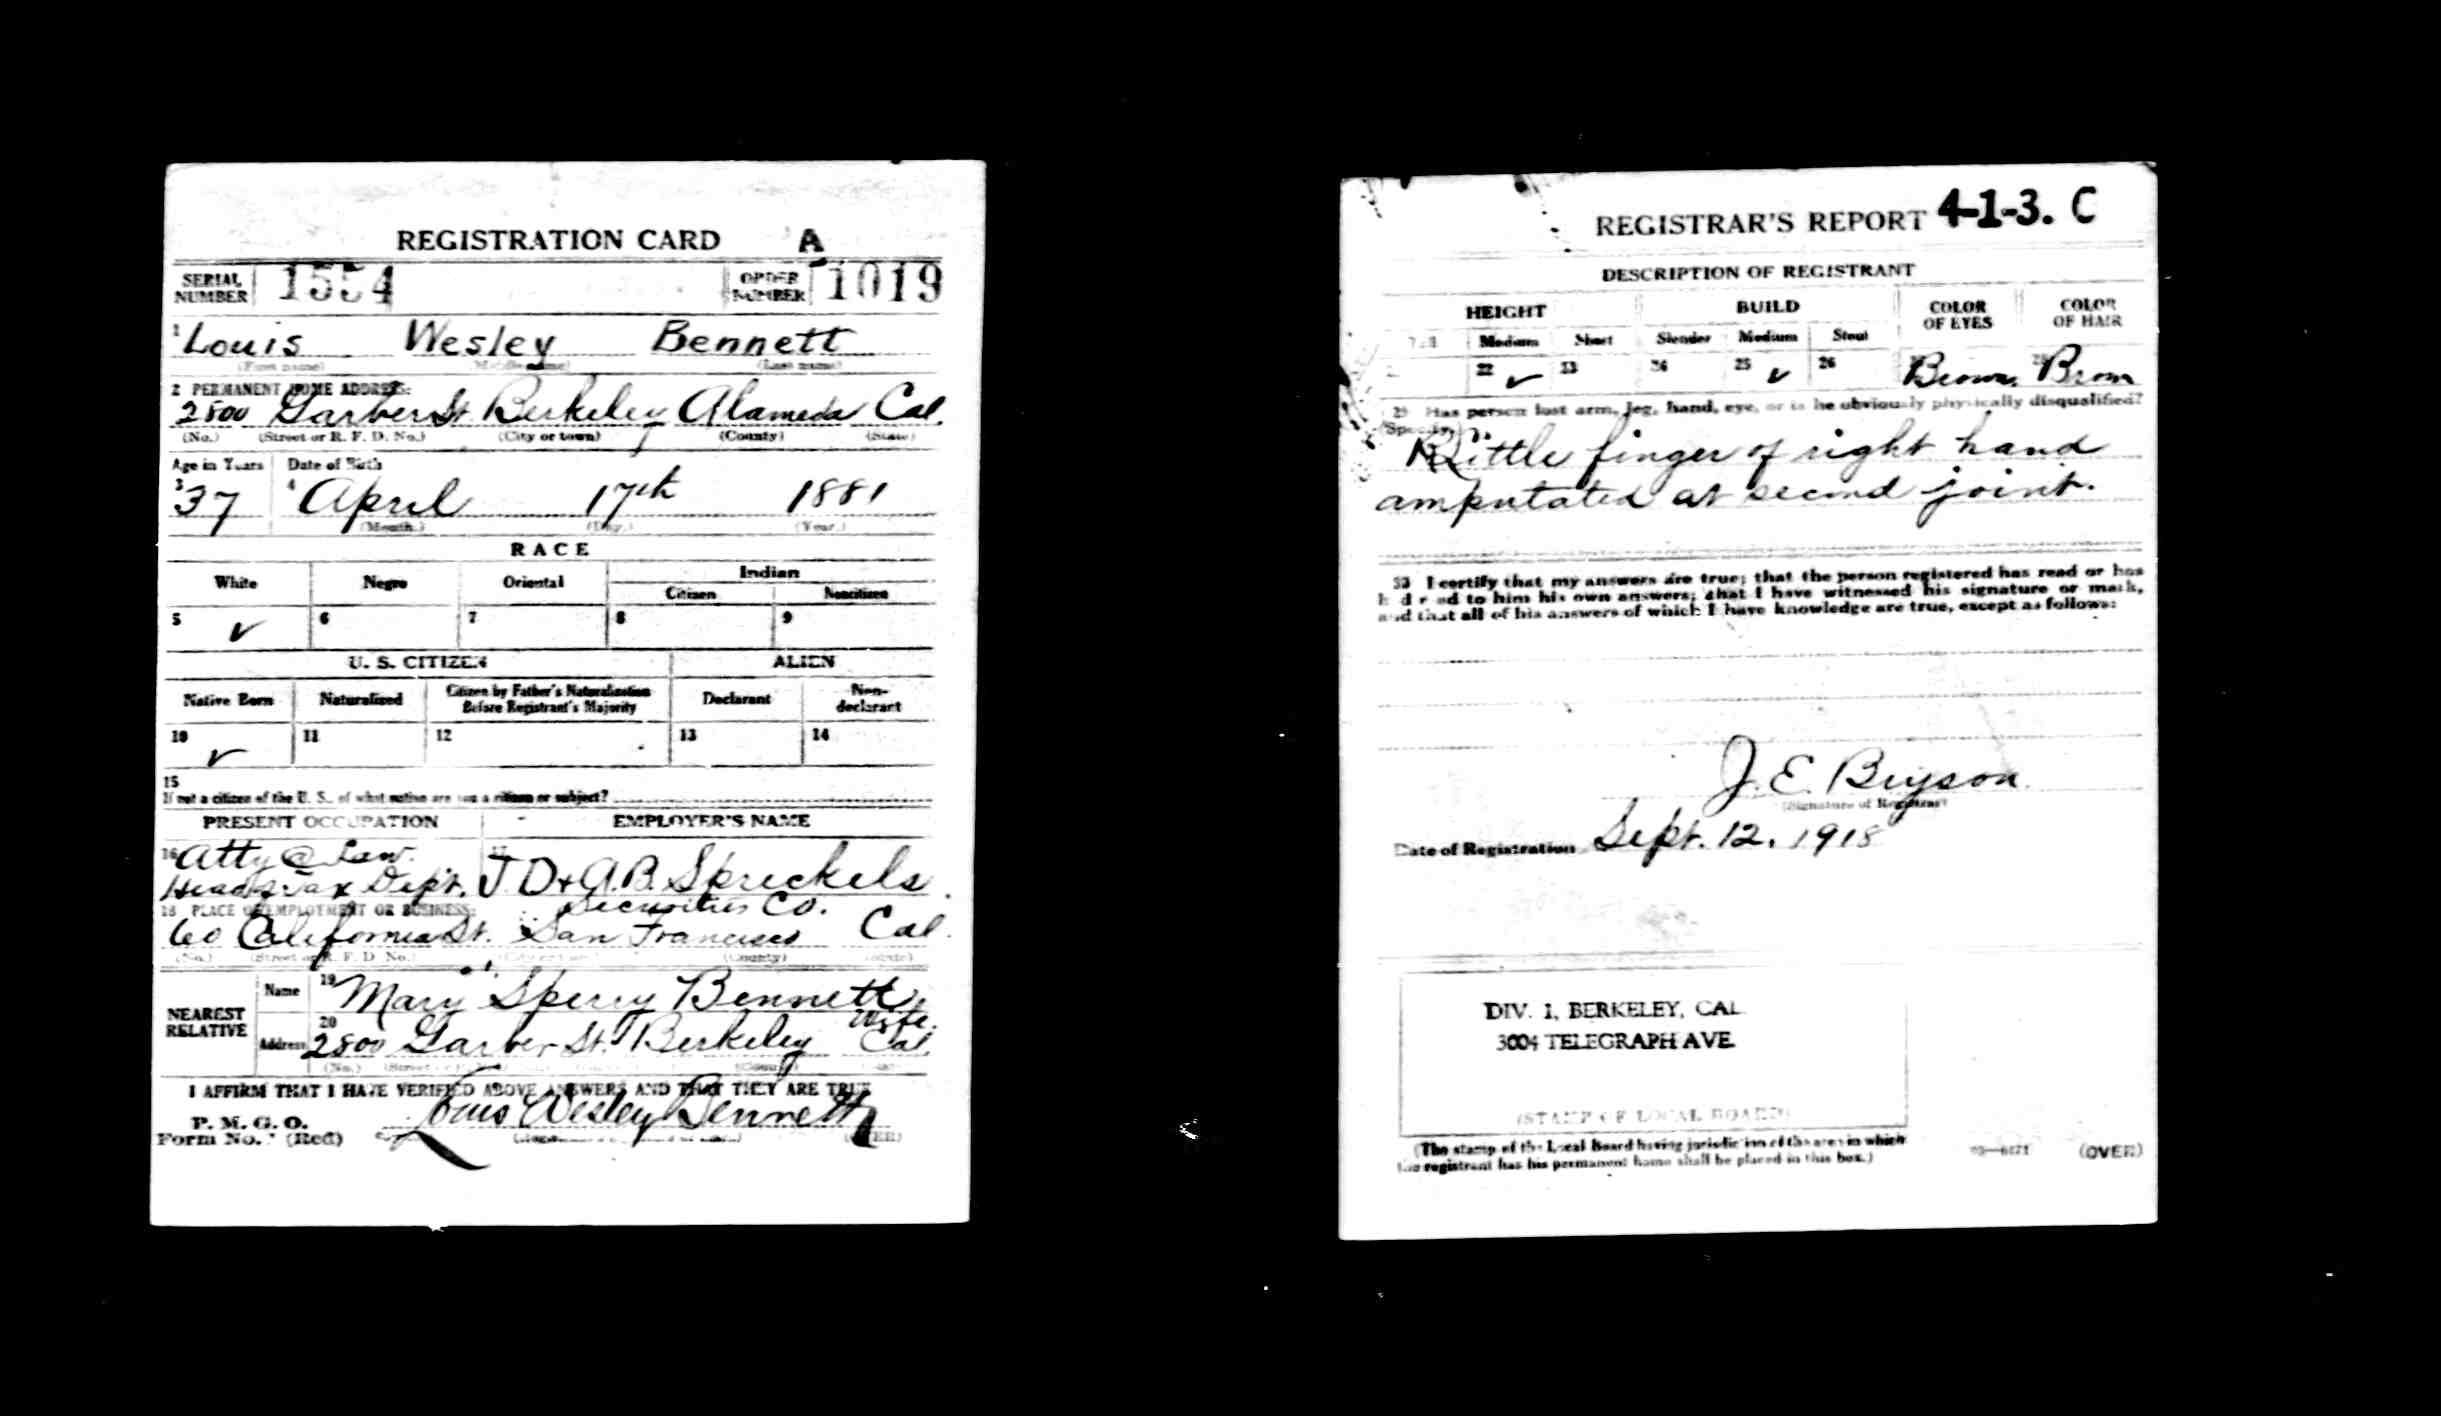 REGISTRATION CARD A
SERIAL NUMBER 1554 ORDER NUMBER 1019
1 Louis Wesley Bennett
(First name) (Middle name) (Last name)
2 PERMANENT HOME ADDRESS:
2800 Garber St. Berkeley Alameda Cal.
(No.) (Street or R. F. D. No.) (City or town) (County) (State)
Age in Years Date of Birth
3 37 4 April 17th 1881
(Month.) (Day.) (Year.)
RACE
White Negro Oriental Indian
Citizen Noncitizen
5 ✓ 6 7 8 9
U. S. CITIZEN ALIEN
Native Born Naturalized Citizen by Father's Naturalization Before Registrant's Majority Declarant Non-declarant
10 ✓ 11 12 13 14
15
If not a citizen of the U. S., of what nation are you a citizen or subject?
PRESENT OCCUPATION EMPLOYER'S NAME
16 Atty @ Law. 17
Head Tax Dept. J D & A.B. Spreckels
18 PLACE OF EMPLOYMENT OR BUSINESS: Securities Co.
60 California St. San Francisco Cal.
(No.) (Street or R. F. D. No.) (City or town) (County) (State)
NEAREST RELATIVE Name 19 Mary Sperry Bennett
Wife.
Address 20 2800 Garber St. Berkeley Cal
(No.) (County)
I AFFIRM THAT I HAVE VERIFIED ABOVE ANSWERS AND THAT THEY ARE TRUE
P. M. G. O.
Form No. 1 (Red) Louis Wesley Bennett
(OVER)
REGISTRAR'S REPORT 4-1-3. C
DESCRIPTION OF REGISTRANT
HEIGHT BUILD COLOR OF EYES COLOR OF HAIR
Tall Medium Short Slender Medium Stout
22 ✓ 23 24 25 ✓ 26 Brown Brown
29 Has person lost arm, leg, hand, eye, or is he obviously physically disqualified?
(Specify.)
Little finger of right hand
amputated at second joint.
30 I certify that my answers are true; that the person registered has read or has
had read to him his own answers; that I have witnessed his signature or mark,
and that all of his answers of which I have knowledge are true, except as follows:
J. E. Bryson
(Signature of Registrar)
Date of Registration Sept. 12, 1918
DIV. 1, BERKELEY, CAL.
3004 TELEGRAPH AVE.
(STAMP OF LOCAL BOARD)
(The stamp of the Local Board having jurisdiction of the area in which
the registrant has his permanent home shall be placed in this box.) (OVER)